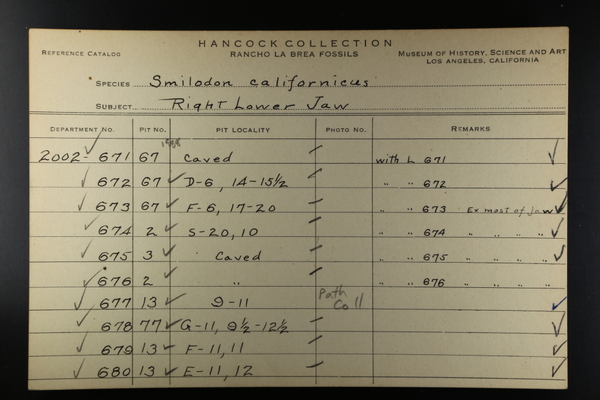 HANCOCK COLLECTION
REFERENCE CATALOG RANCHO LA BREA FOSSILS MUSEUM OF HISTORY, SCIENCE AND ART
LOS ANGELES, CALIFORNIA
SPECIES Smilodon californicus
SUBJECT Right Lower Jaw
DEPARTMENT NO. PIT NO. PIT LOCALITY PHOTO NO. REMARKS
2002-671 67 Caved with L 671
672 67 D-6, 14-15½ " " 672
673 67 F-6, 17-20 " " 673 Ex most of jaw
674 2 S-20, 10 " " 674 " " " "
675 3 Caved " " 675 " " " "
676 2 " " " 676 " " " "
677 13 9-11 Path Coll
678 77 G-11, 9½-12½
679 13 F-11, 11
680 13 E-11, 12